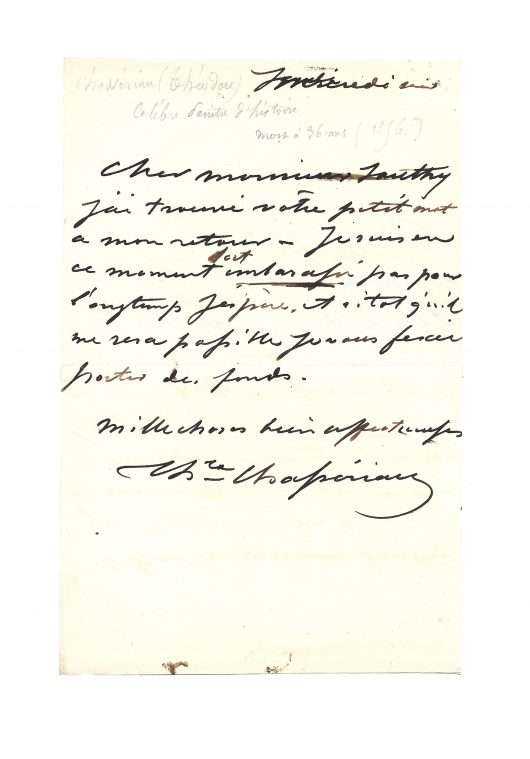 Chassériau (Théodore)
Célèbre peintre d'histoire
mort à 36 ans (1856)
soir
Cher monsieur
j'ai trouvé votre petit mot
a mon retour - Je suis en
ce moment fort embarassé pas pour
longtemps J'espère, et sitot qu'il
me sera possible je vous ferai
porter des fonds.
Mille choses bien affectueuses
Th.re Chassériau